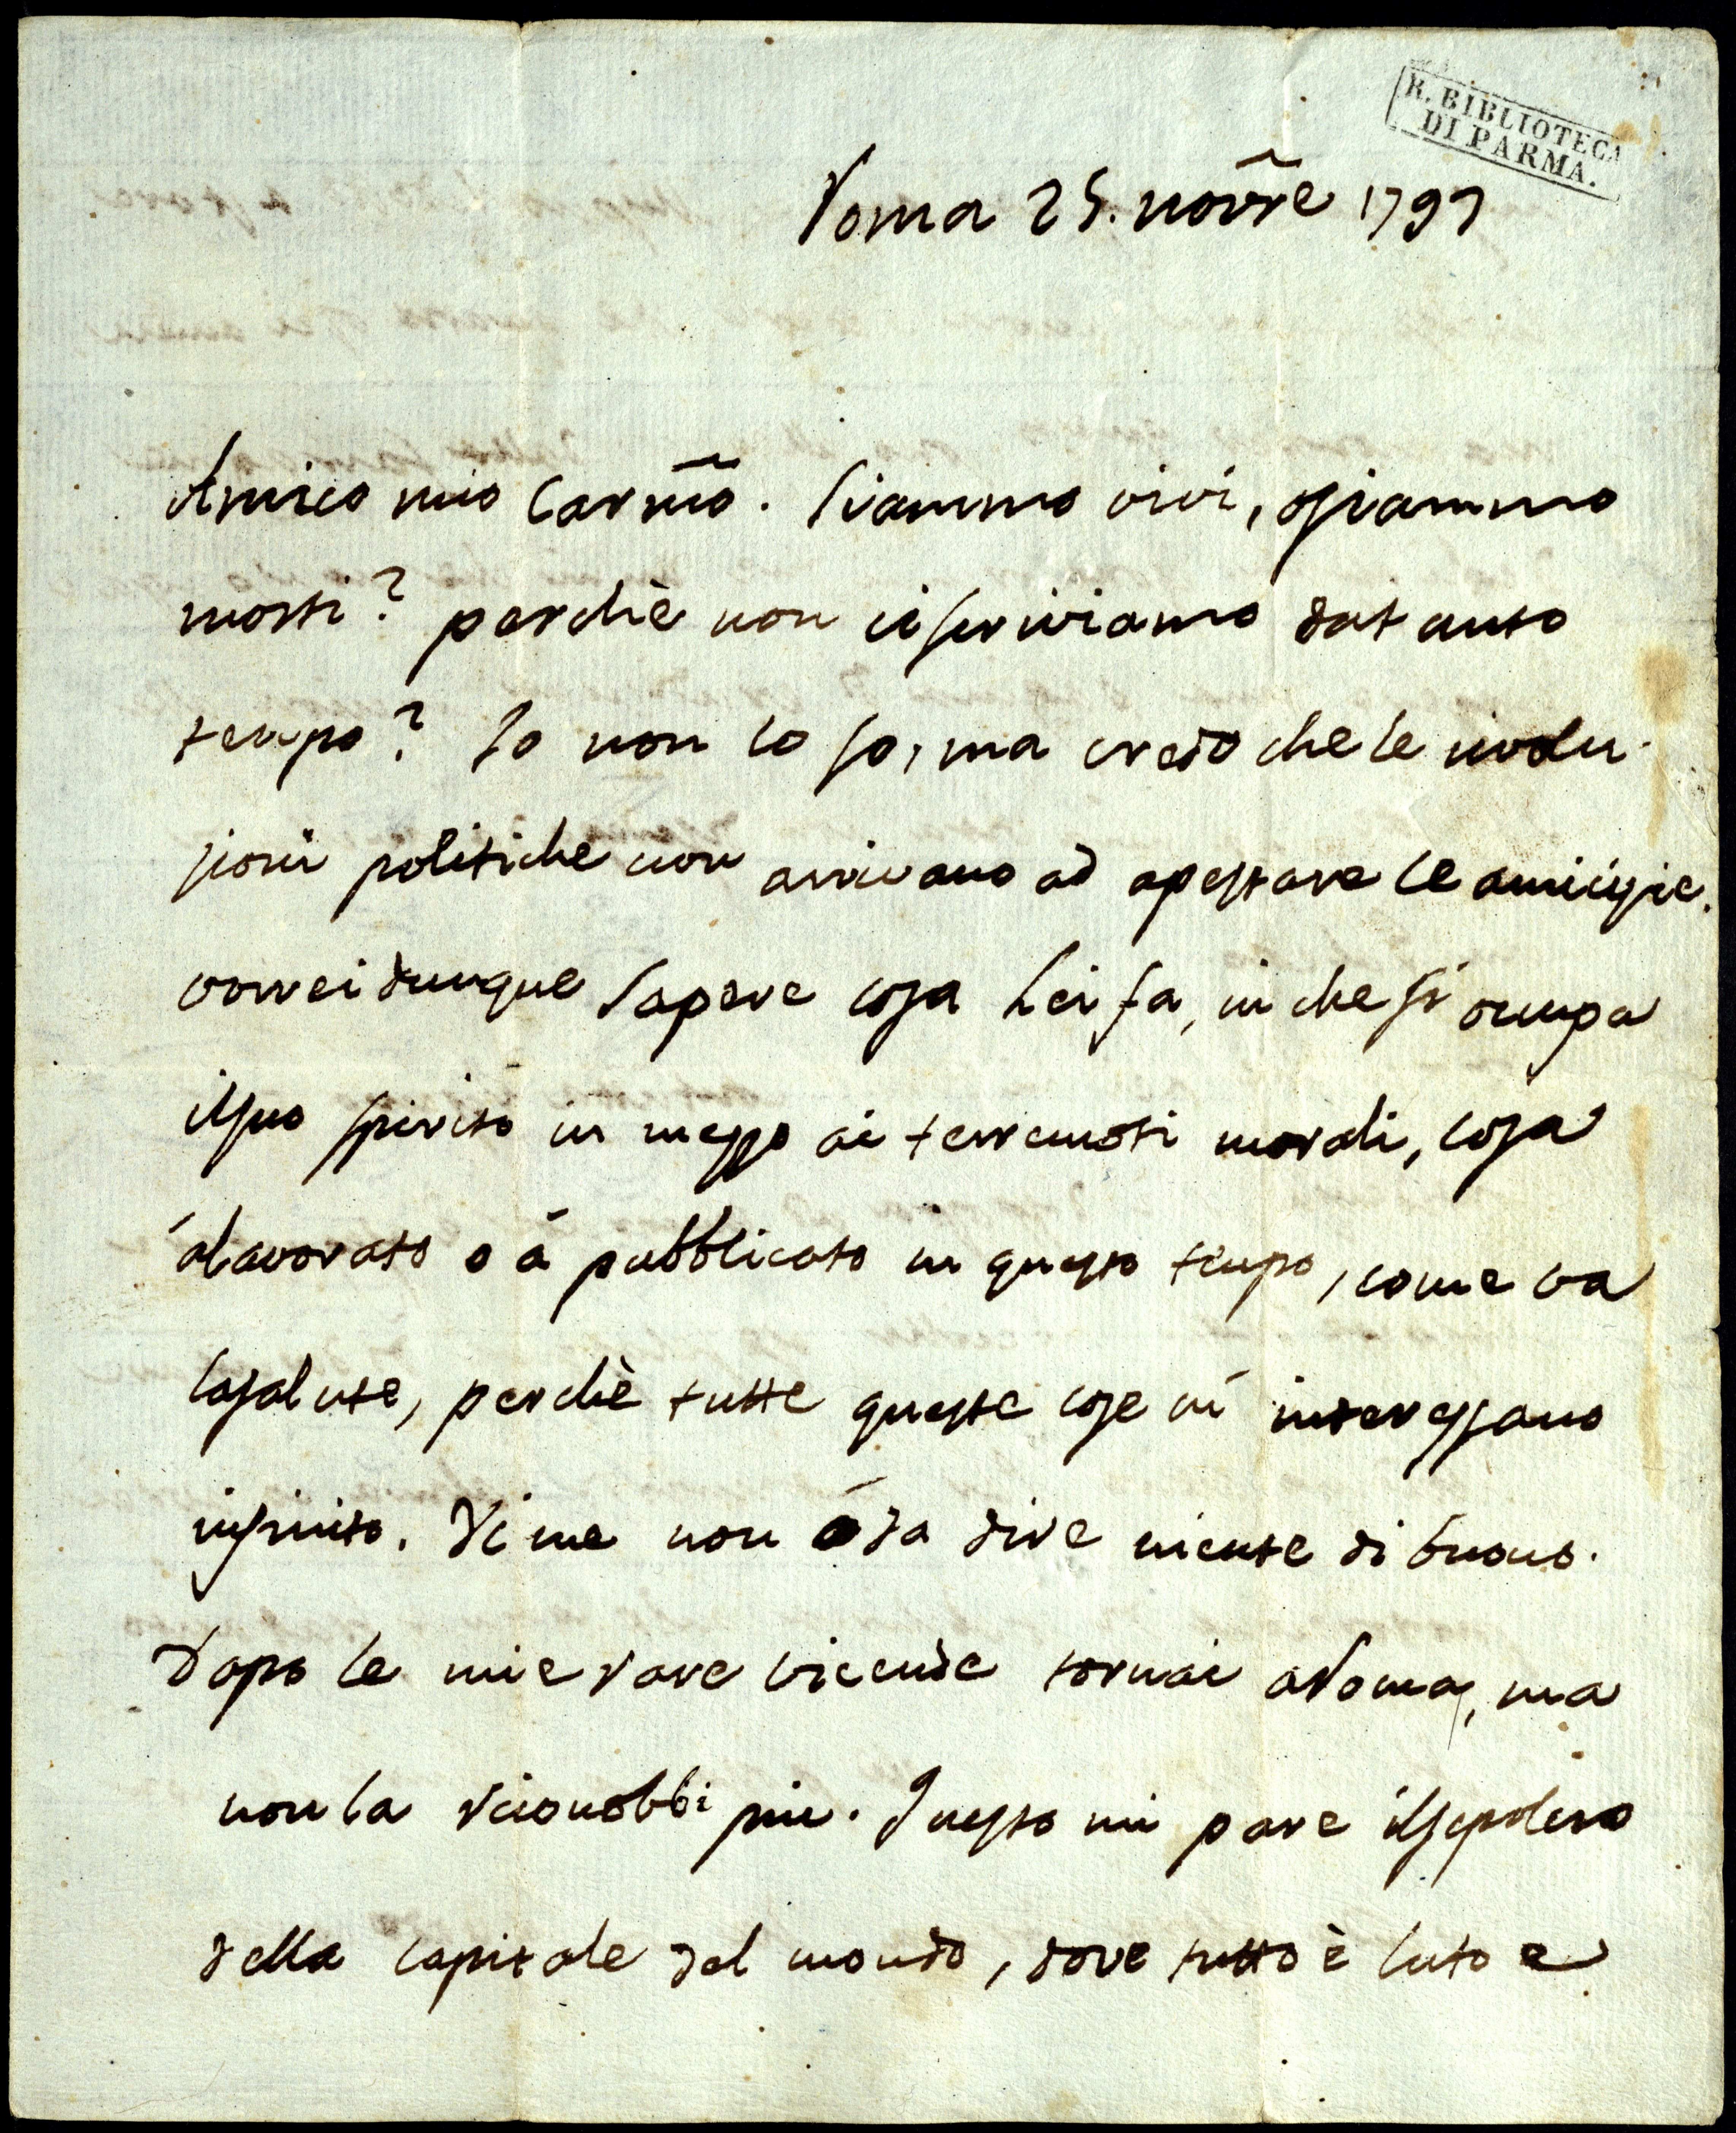 R. BIBLIOTECA
DI PARMA.
Roma 25. novr̃e 1797
Amico mio Carm̃o. Siammo vivi, o siammo
morti? perchè non ci scriviamo da tanto
tempo? Io non lo so, ma credo che le rivolu-
zioni politiche non arrivano ad apestare le amicizie.
vorrei dunque sapere cosa Lei fa, in che si occupa
il suo spirito in mezzo ai terremoti morali, cosa
á lavorato o á pubblicato in questo tempo, come va
la salute, perchè tutte queste cose mi interessano
infinito. Di me non ó da dire niente di buono.
Dopo le mie rare vicende tornai a Roma, ma
non la riconobbi piu. Questo mi pare il sepolcro
della capitale del mondo, dove tutto è luto e